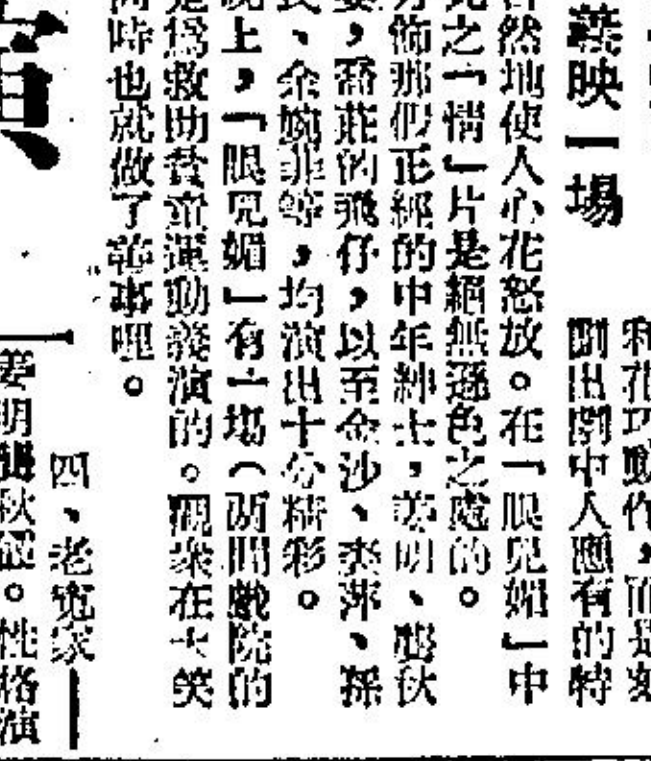 利花巧動作，而是刻
劃出劇中人應有的特
義映一場
自然地使人心花怒放。在「眼兒媚」中
比之「情」片是絕無遜色之處的。
方飾那假正經的中年紳士，姜明、秋
，喬莊的飛仔，以至金沙、李萍、孫
、余婉菲等，均演出十分精彩。
晚上，「眼兒媚」有一場（兩間戲院的
是為救助貧童運動義演的。觀衆在大笑
同時也就做了善事哩。
四、老冤家
姜明秋。性格演